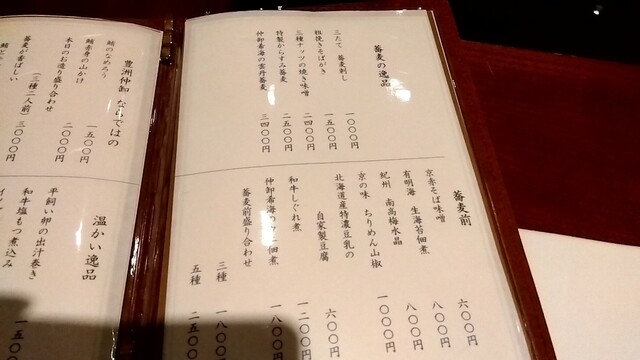 蕎麦の逸品
三たて 蕎麦刺し 一〇〇〇円
粗挽きそばがき 一五〇〇円
三種ナッツの焼き味噌 二四〇〇円
特製からすみ蕎麦 二五〇〇円
仲卸希海の雲丹蕎麦 三四〇〇円
蕎麦前
京赤そば味噌 六〇〇円
有明海 生海苔佃煮 八〇〇円
紀州 南高梅水晶 八〇〇円
京の味 ちりめん山椒 一〇〇〇円
北海道産特濃豆乳の
自家製豆腐 六〇〇円
和牛しぐれ煮 一二〇〇円
仲卸希海の
佃煮 一八〇〇円
蕎麦前盛り合わせ
三種 一八〇〇
五種 二五〇
豊洲仲卸 ならではの
鮪のなめろう 一五〇〇円
鮪赤身の山かけ 二〇〇〇円
本日のお造り盛り合わせ
(三種二人前) 三〇〇〇円
蕎麦が香ばしい
温かい逸品
平飼い卵の出汁巻き
和牛塩もつ煮込み 一五〇